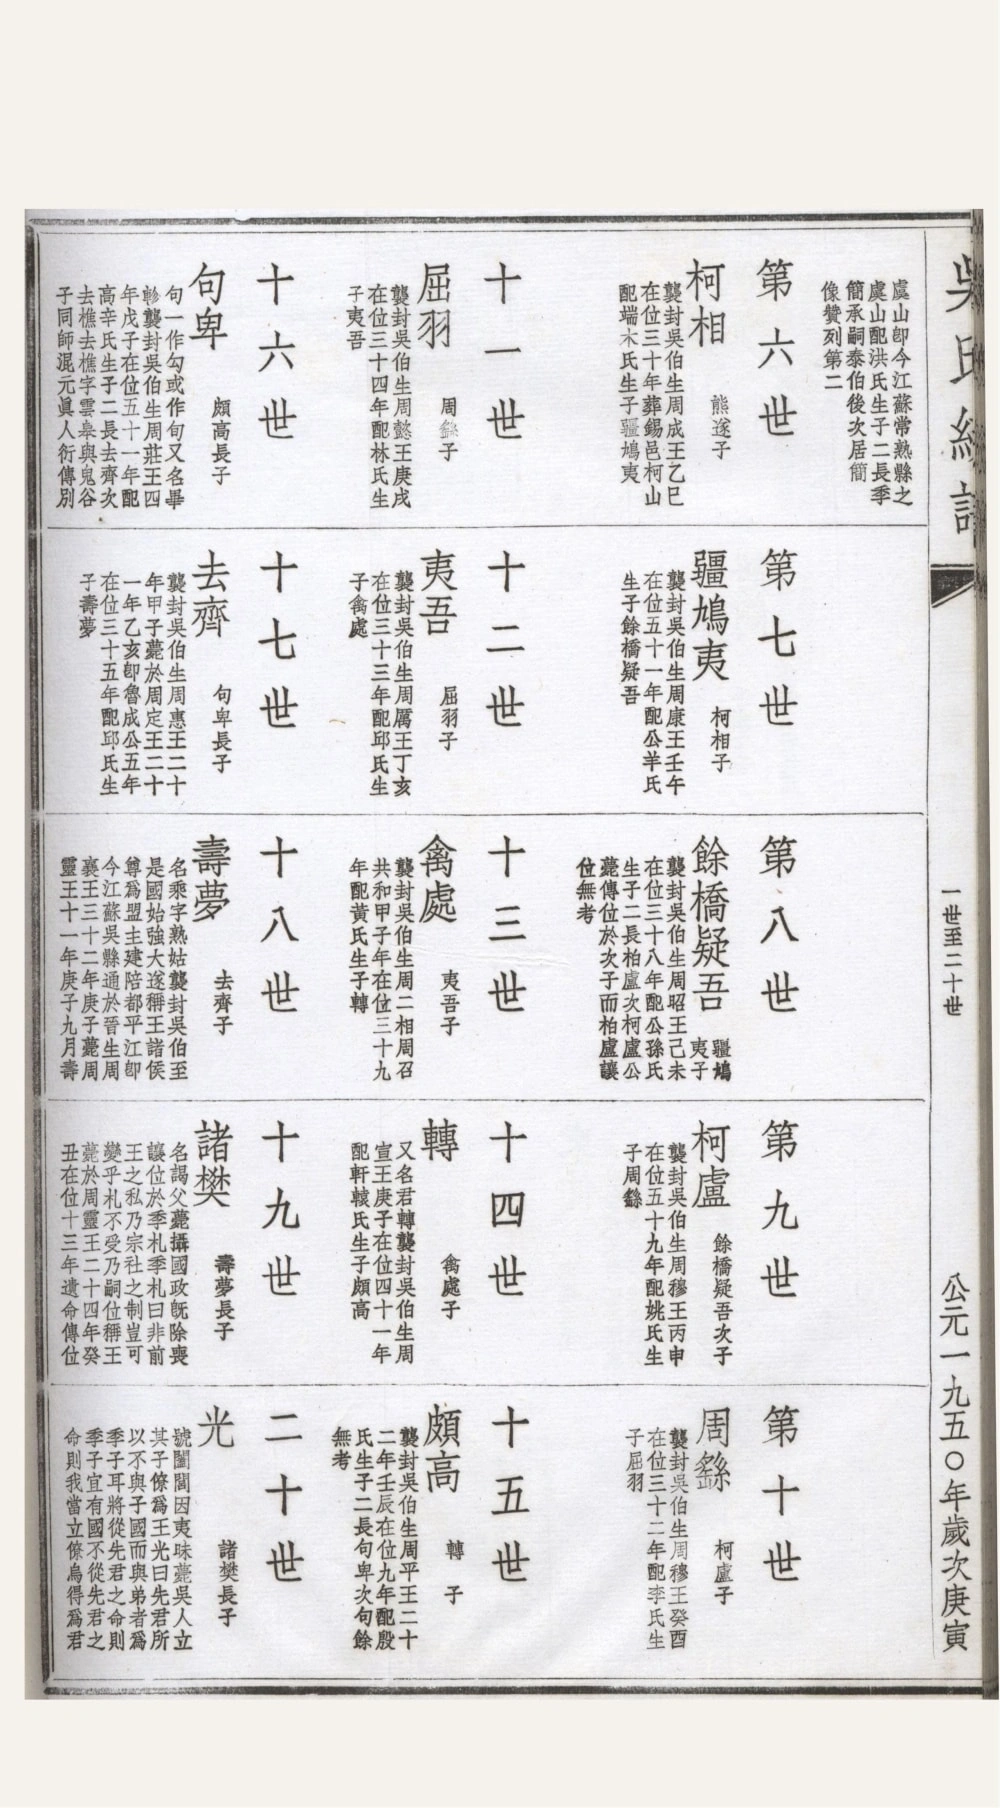 吳氏總譜
一世至二十世
公元一九五〇年歲次庚寅
虞山卽今江蘇常熟縣之
虞山配洪氏生子二長季
簡承嗣泰伯後次居簡
像贊列第二
第六世
柯相
熊遂子
襲封吳伯生周成王乙巳
在位三十年葬錫邑柯山
配端木氏生子疆鳩夷
第七世
疆鳩夷
柯相子
襲封吳伯生周康王壬午
在位五十一年配公羊氏
生子餘橋疑吾
第八世
餘橋疑吾
疆鳩
夷子
襲封吳伯生周昭王己未
在位三十八年配公孫氏
生子二長柏盧次柯盧公
薨傳位於次子而柏盧讓
位無考
第九世
柯盧
餘橋疑吾次子
襲封吳伯生周穆王丙申
在位五十九年配姚氏生
子周繇
第十世
周繇
柯盧子
襲封吳伯生周穆王癸酉
在位三十二年配李氏生
子屈羽
十一世
屈羽
周繇子
襲封吳伯生周懿王庚戌
在位三十四年配林氏生
子夷吾
十二世
夷吾
屈羽子
襲封吳伯生周厲王丁亥
在位三十三年配邱氏生
子禽處
十三世
禽處
夷吾子
襲封吳伯生周二相周召
共和甲子年在位三十九
年配黃氏生子轉
十四世
轉
禽處子
又名君轉襲封吳伯生周
宣王庚子在位四十一年
配軒轅氏生子頗高
十五世
頗高
轉子
襲封吳伯生周平王二十
二年壬辰在位九年配殷
氏生子二長句卑次句餘
無考
十六世
句卑
頗高長子
句一作勾或作句又名畢
軫襲封吳伯生周莊王四
年戊子在位五十一年配
高辛氏生子二長去齊次
去樵去樵字雲皋與鬼谷
子同師混元眞人衍傳別
十七世
去齊
句卑長子
襲封吳伯生周惠王二十
年甲子薨於周定王二十
一年乙亥卽魯成公五年
在位三十五年配邱氏生
子壽夢
十八世
壽夢
去齊子
名乘字熟姑襲封吳伯至
是國始強大遂稱王諸侯
尊爲盟主建陪都平江卽
今江蘇吳縣通於晉生周
襄王三十二年庚子薨周
靈王十一年庚子九月壽
十九世
諸樊
壽夢長子
名謁父薨攝國政旣除喪
讓位於季札季札曰非前
王之私乃宗社之制豈可
變乎札不受乃嗣位稱王
薨於周靈王二十四年癸
丑在位十三年遺命傳位
二十世
光
諸樊長子
號闔閭因夷昧薨吳人立
其子僚爲王光曰先君所
以不與子國而與弟者爲
季子耳將從先君之命則
季子宜有國不從先君之
命則我當立僚烏得爲君